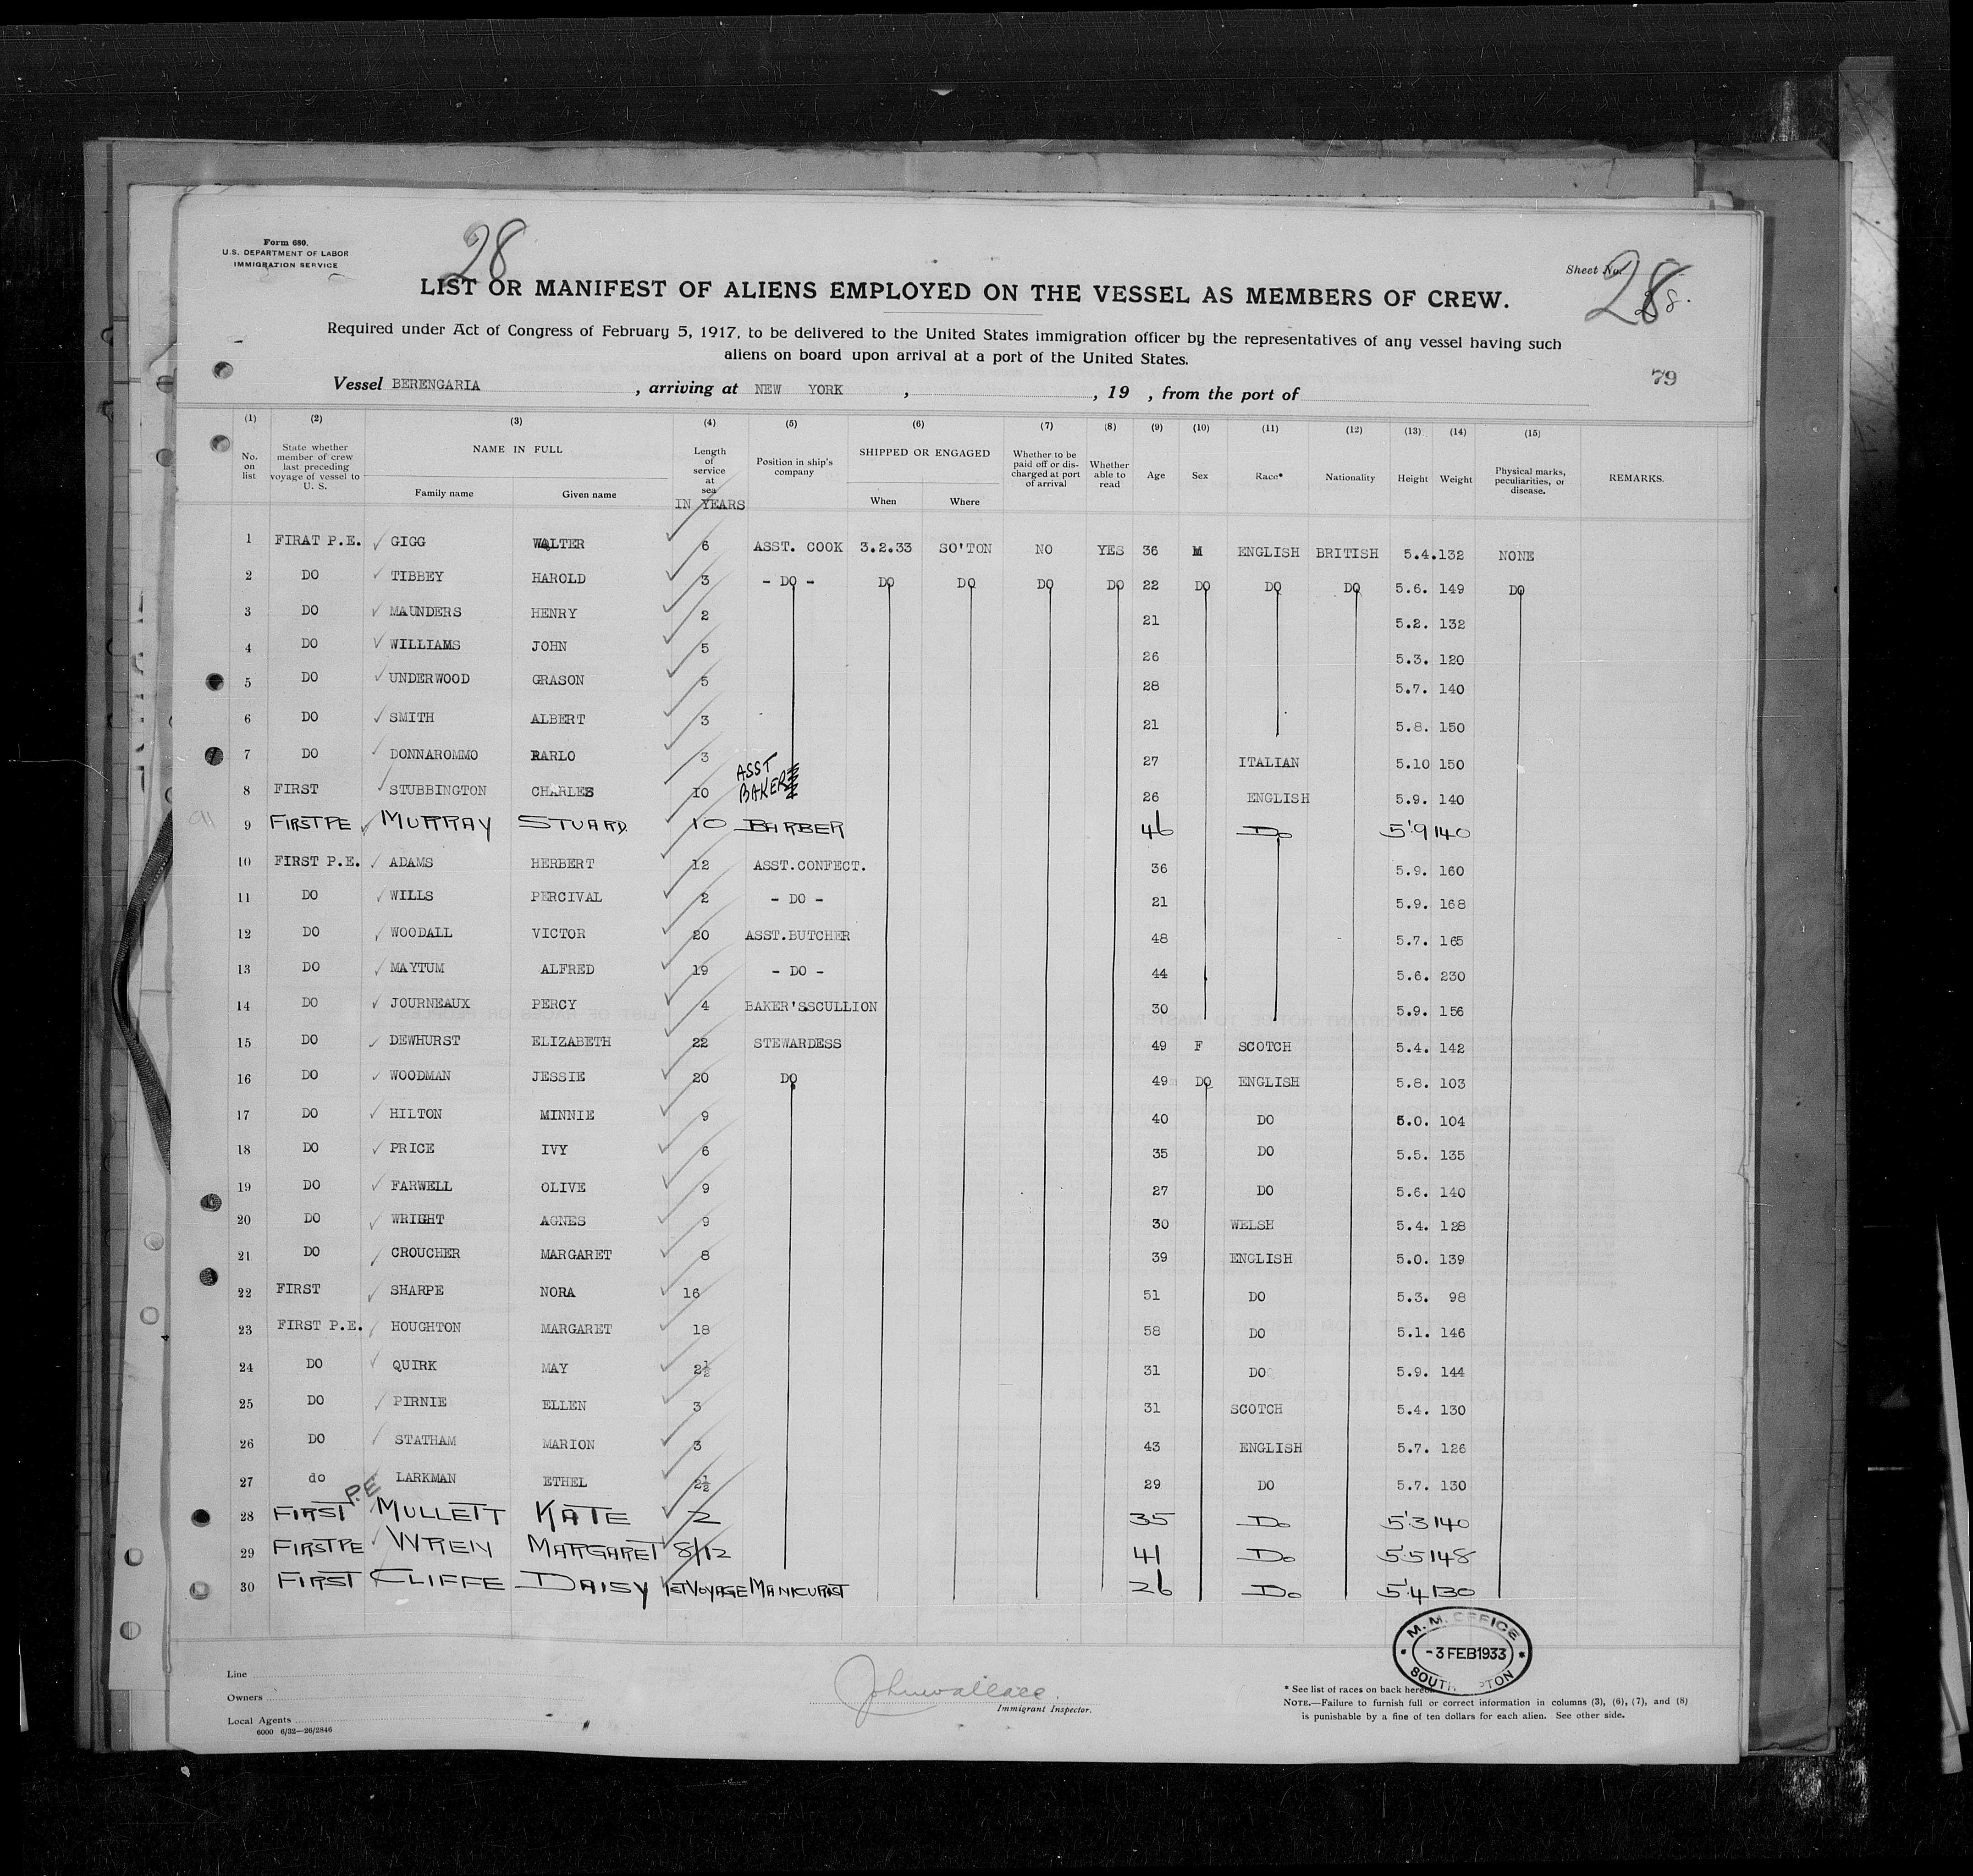 Form 680.
U.S. DEPARTMENT OF LABOR
IMMIGRATION SERVICE
28
Sheet No. 28
28.
LIST OR MANIFEST OF ALIENS EMPLOYED ON THE VESSEL AS MEMBERS OF CREW.
Required under Act of Congress of February 5, 1917, to be delivered to the United States immigration officer by the representatives of any vessel having such
aliens on board upon arrival at a port of the United States.
79
Vessel BERENGARIA , arriving at NEW YORK , , 19 , from the port of
(1) (2) (3) (4) (5) (6) (7) (8) (9) (10) (11) (12) (13) (14) (15)
No. on list State whether member of crew last preceding voyage of vessel to U. S. NAME IN FULL Family name Given name Length of service at sea IN YEARS Position in ship's company SHIPPED OR ENGAGED When Where Whether to be paid off or discharged at port of arrival Whether able to read Age Sex Race* Nationality Height Weight Physical marks, peculiarities, or disease. REMARKS.
1 FIRAT P.E. GIGG WALTER 6 ASST. COOK 3.2.33 SO'TON NO YES 36 M ENGLISH BRITISH 5.4. 132 NONE
2 DO TIBBEY HAROLD 3 - DO - DO DO DO DO 22 DO DO DO 5.6. 149 DO
3 DO MAUNDERS HENRY 2 21 5.2. 132
4 DO WILLIAMS JOHN 5 26 5.3. 120
5 DO UNDERWOOD GRASON 5 28 5.7. 140
6 DO SMITH ALBERT 3 21 5.8. 150
7 DO DONNAROMMO RARLO 3 27 ITALIAN 5.10 150
8 FIRST STUBBINGTON CHARLES 10 ASST BAKER 26 ENGLISH 5.9. 140
9 FIRST PE MURRAY STUARD. 10 BARBER 46 Do 5'9 140
10 FIRST P.E. ADAMS HERBERT 12 ASST.CONFECT. 36 5.9. 160
11 DO WILLS PERCIVAL 2 - DO - 21 5.9. 168
12 DO WOODALL VICTOR 20 ASST.BUTCHER 48 5.7. 165
13 DO MAYTUM ALFRED 19 - DO - 44 5.6. 230
14 DO JOURNEAUX PERCY 4 BAKER'SSCULLION 30 5.9. 156
15 DO DEWHURST ELIZABETH 22 STEWARDESS 49 F SCOTCH 5.4. 142
16 DO WOODMAN JESSIE 20 DO 49 DO ENGLISH 5.8. 103
17 DO HILTON MINNIE 9 40 DO 5.0. 104
18 DO PRICE IVY 6 35 DO 5.5. 135
19 DO FARWELL OLIVE 9 27 DO 5.6. 140
20 DO WRIGHT AGNES 9 30 WELSH 5.4. 128
21 DO CROUCHER MARGARET 8 39 ENGLISH 5.0. 139
22 FIRST SHARPE NORA 16 51 DO 5.3. 98
23 FIRST P.E. HOUGHTON MARGARET 18 58 DO 5.1. 146
24 DO QUIRK MAY 2½ 31 DO 5.9. 144
25 DO PIRNIE ELLEN 3 31 SCOTCH 5.4. 130
26 DO STATHAM MARION 3 43 ENGLISH 5.7. 126
27 do LARKMAN ETHEL 2½ 29 DO 5.7. 130
28 FIRST P.E MULLETT KATE 2 35 Do 5'3 140
29 FIRST PE WREN MARGARET 8/12 41 Do 5'5 148
30 FIRST CLIFFE DAISY 1ST VOYAGE MANICURIST 26 Do 5'4 130
M. M. OFFICE
-3 FEB 1933
Line
Owners
Local Agents
6000 6/32—26/2846
John Wallace.
Immigrant Inspector.
* See list of races on back hereof.
NOTE.—Failure to furnish full or correct information in columns (3), (6), (7), and (8)
is punishable by a fine of ten dollars for each alien. See other side.